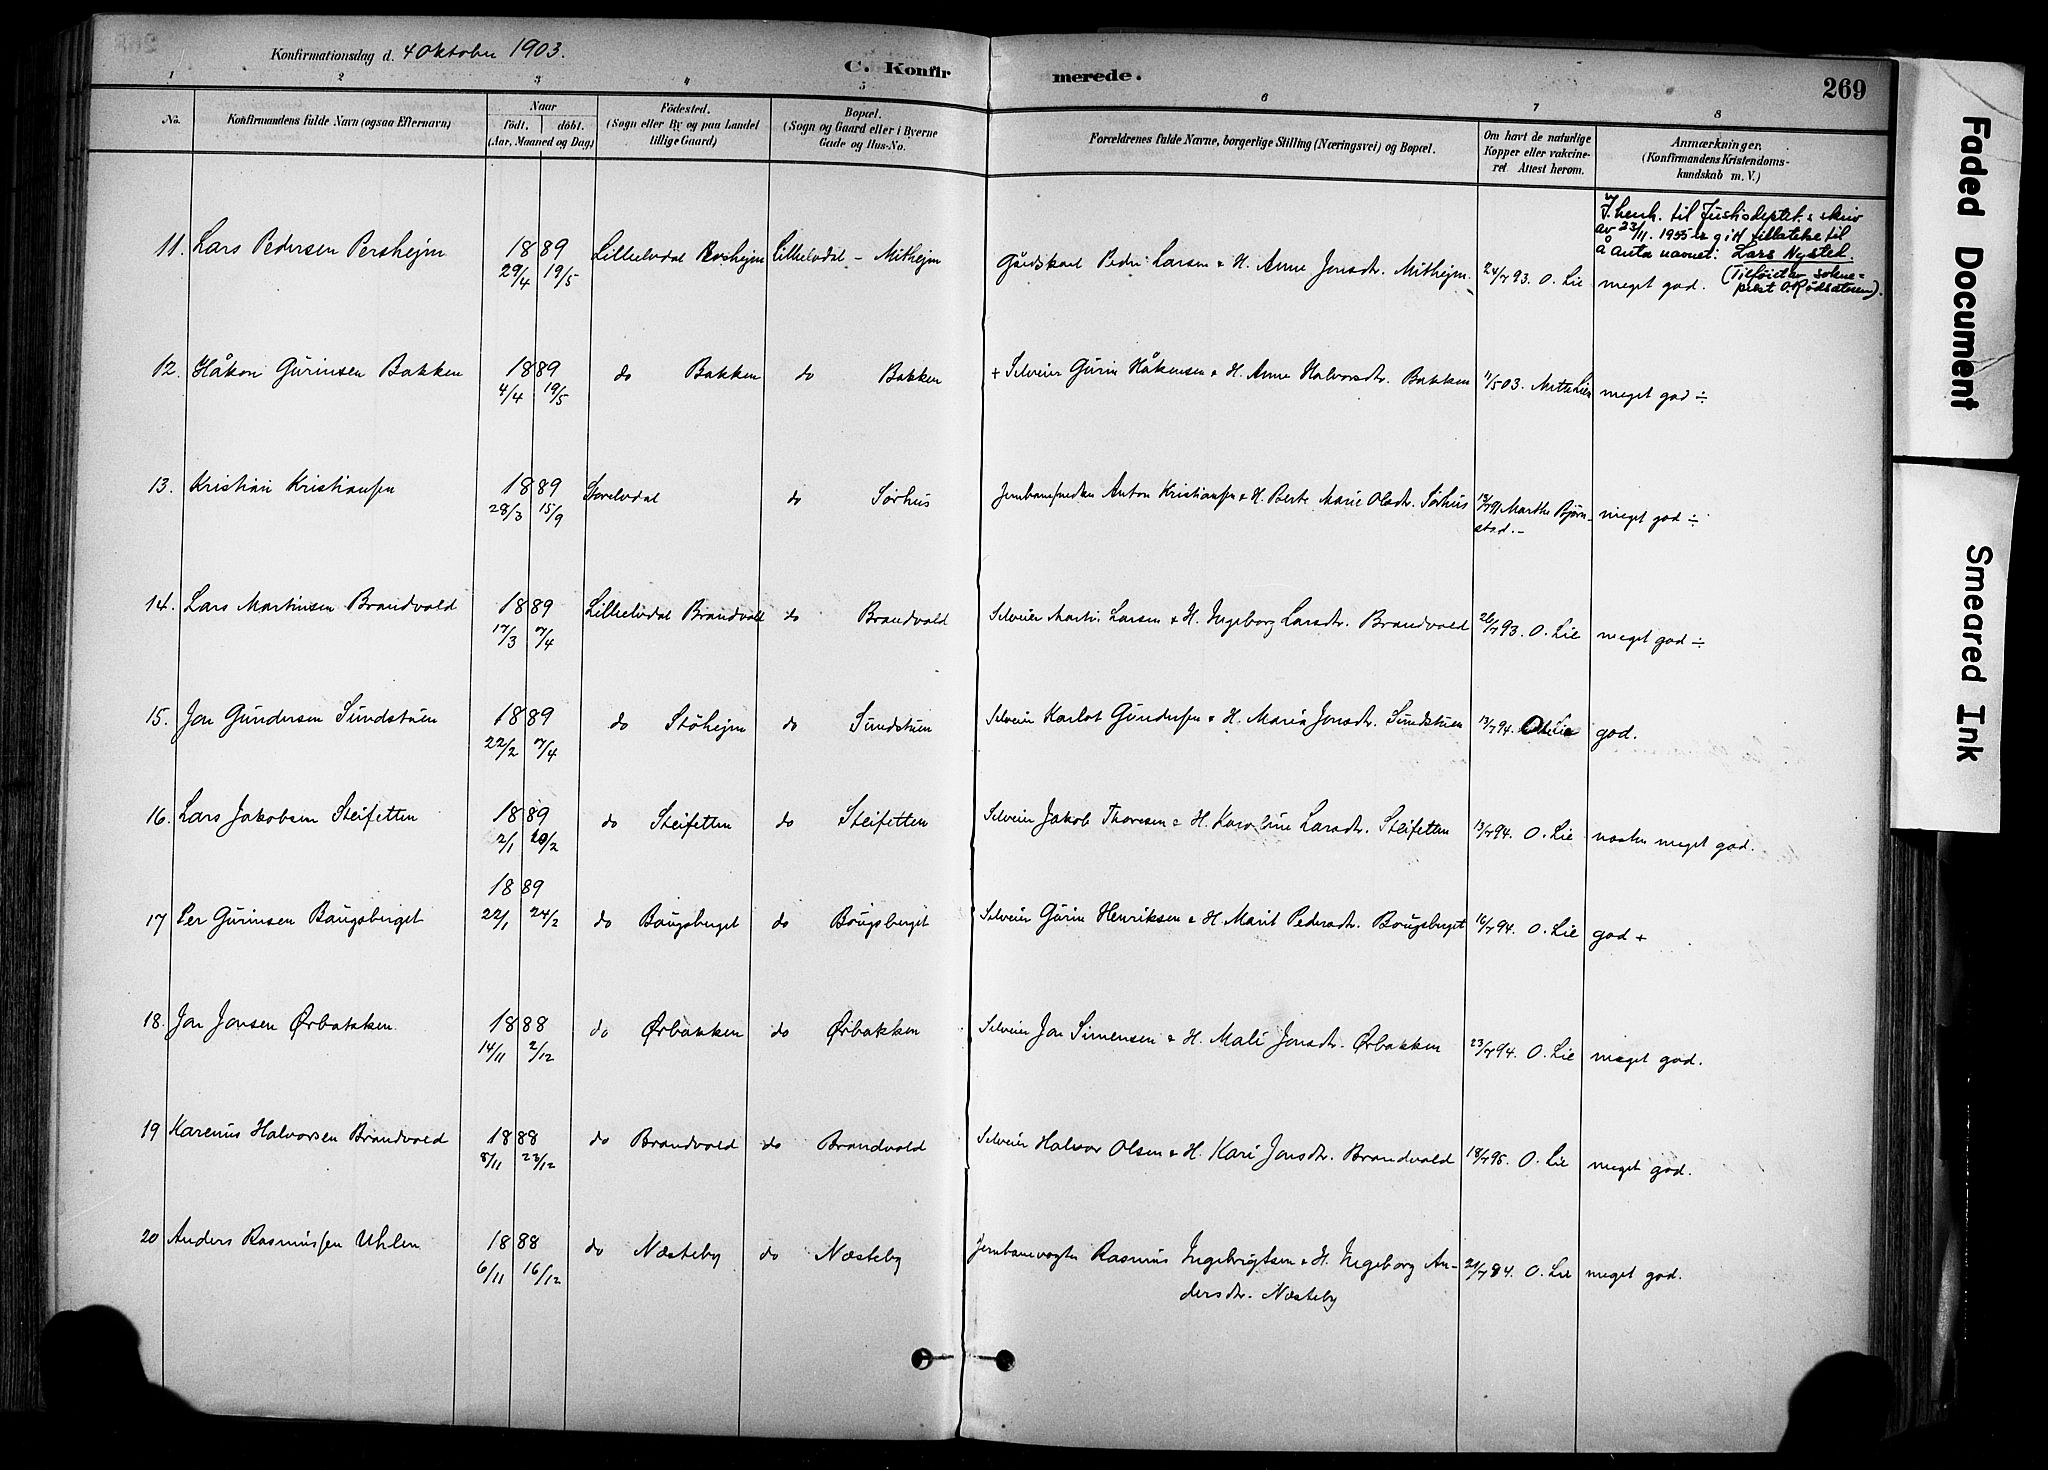 Konfirmationsdag d. 4 Oktober 1903.
C. Konfirmerede.
269
1 2 3 4 5 6 7 8
No.
Konfirmandens fulde Navn (ogsaa Efternavn)
Naar
födt, döbt.
(Aar, Maaned og Dag)
Födested.
(Sogn eller By og paa Landet
tillige Gaard)
Bopæl.
(Sogn og Gaard eller i Byerne
Gade og Hus-No.
Forældrenes fulde Navne, borgerlige Stilling (Næringsvei) og Bopæl.
Om havt de naturlige
Kopper eller vakcine-
ret Attest herom.
Anmærkninger.
(Konfirmandens Kristendoms-
kundskab m. V.)
I henh. til Justisdeptet.s skriv
av 23/11. 1955 er gitt tillatelse til
å anta navnet: Lars Nystet.
(Tilføiet av sokne-
prest O. Rødsæteren).
11. Lars Pedersen Pershejm 1889 29/4 19/5 Lilleelvdal Pershejm Lilleelvdal - Mithejm Gårdskarl Peder Larsen & H. Anne Jonsdtr. Mithejm. 24/7 93. O. Lie meget god.
12. Håkon Gurinsen Bakken 1889 4/4 19/5 do Bakken do Bakken + Selveier Gurin Håkensen & H. Anne Halvorsdtr. Bakken 11/5 03. meget god ÷
13. Kristian Kristiansen 1889 28/3 15/9 Storelvdal do Sørhus Jernbanesmeden Anton Kristiansen & H. Berte Marie Olsdtr. Sørhus Marthe Bjørn-
stad.- meget god ÷
14. Lars Martinsen Brandvold 1889 17/3 7/4 Lilleelvdal Brandvold do Brandvold Selveier Martin Larsen & H. Ingeborg Larsdtr. Brandvold 26/7 93. O. Lie meget god ÷
15. Jon Gundersen Sundstuen 1889 22/2 7/4 do Støhejm do Sundstuen Selveier Karlot Gundersen & H. Maria Jonsdtr. Sundstuen 13/7 94. O. Lie god.
16. Lars Jakobsen Steifetten 1889 2/1 20/2 do Steifetten do Steifetten Selveier Jakob Thoresen & H. Karoline Larsdtr. Steifetten 13/7 94. O. Lie næsten meget god.
17 Per Gurinsen Baugsberget 1889 22/1 24/2 do Baugsberget do Baugsberget Selveier Gurin Henriksen & H. Marit Pedersdtr. Baugsberget 16/7 94. O. Lie god +
18. Jon Jonsen Ørbakken 1888 14/11 2/12 do Ørbakken do Ørbakken Selveier Jon Simensen & H. Mali Jonsdtr. Ørbakken 23/7 94. O. Lie meget god.
19 Karenus Halvorsen Brandvold 1888 8/11 23/12 do Brandvold do Brandvold Selveier Halvor Olsen & H. Kari Jonsdtr. Brandvold 18/7 95. O. Lie meget god.
20 Anders Rasmussen Uhlen 1888 6/11 16/12 do Næsteby do Næsteby Jernbanevogter Rasmus Ingebrigtsen & H. Ingeborg An-
dersdtr. Næsteby 21/7 84. O. Lie meget god.
Faded Document
Smeared Ink